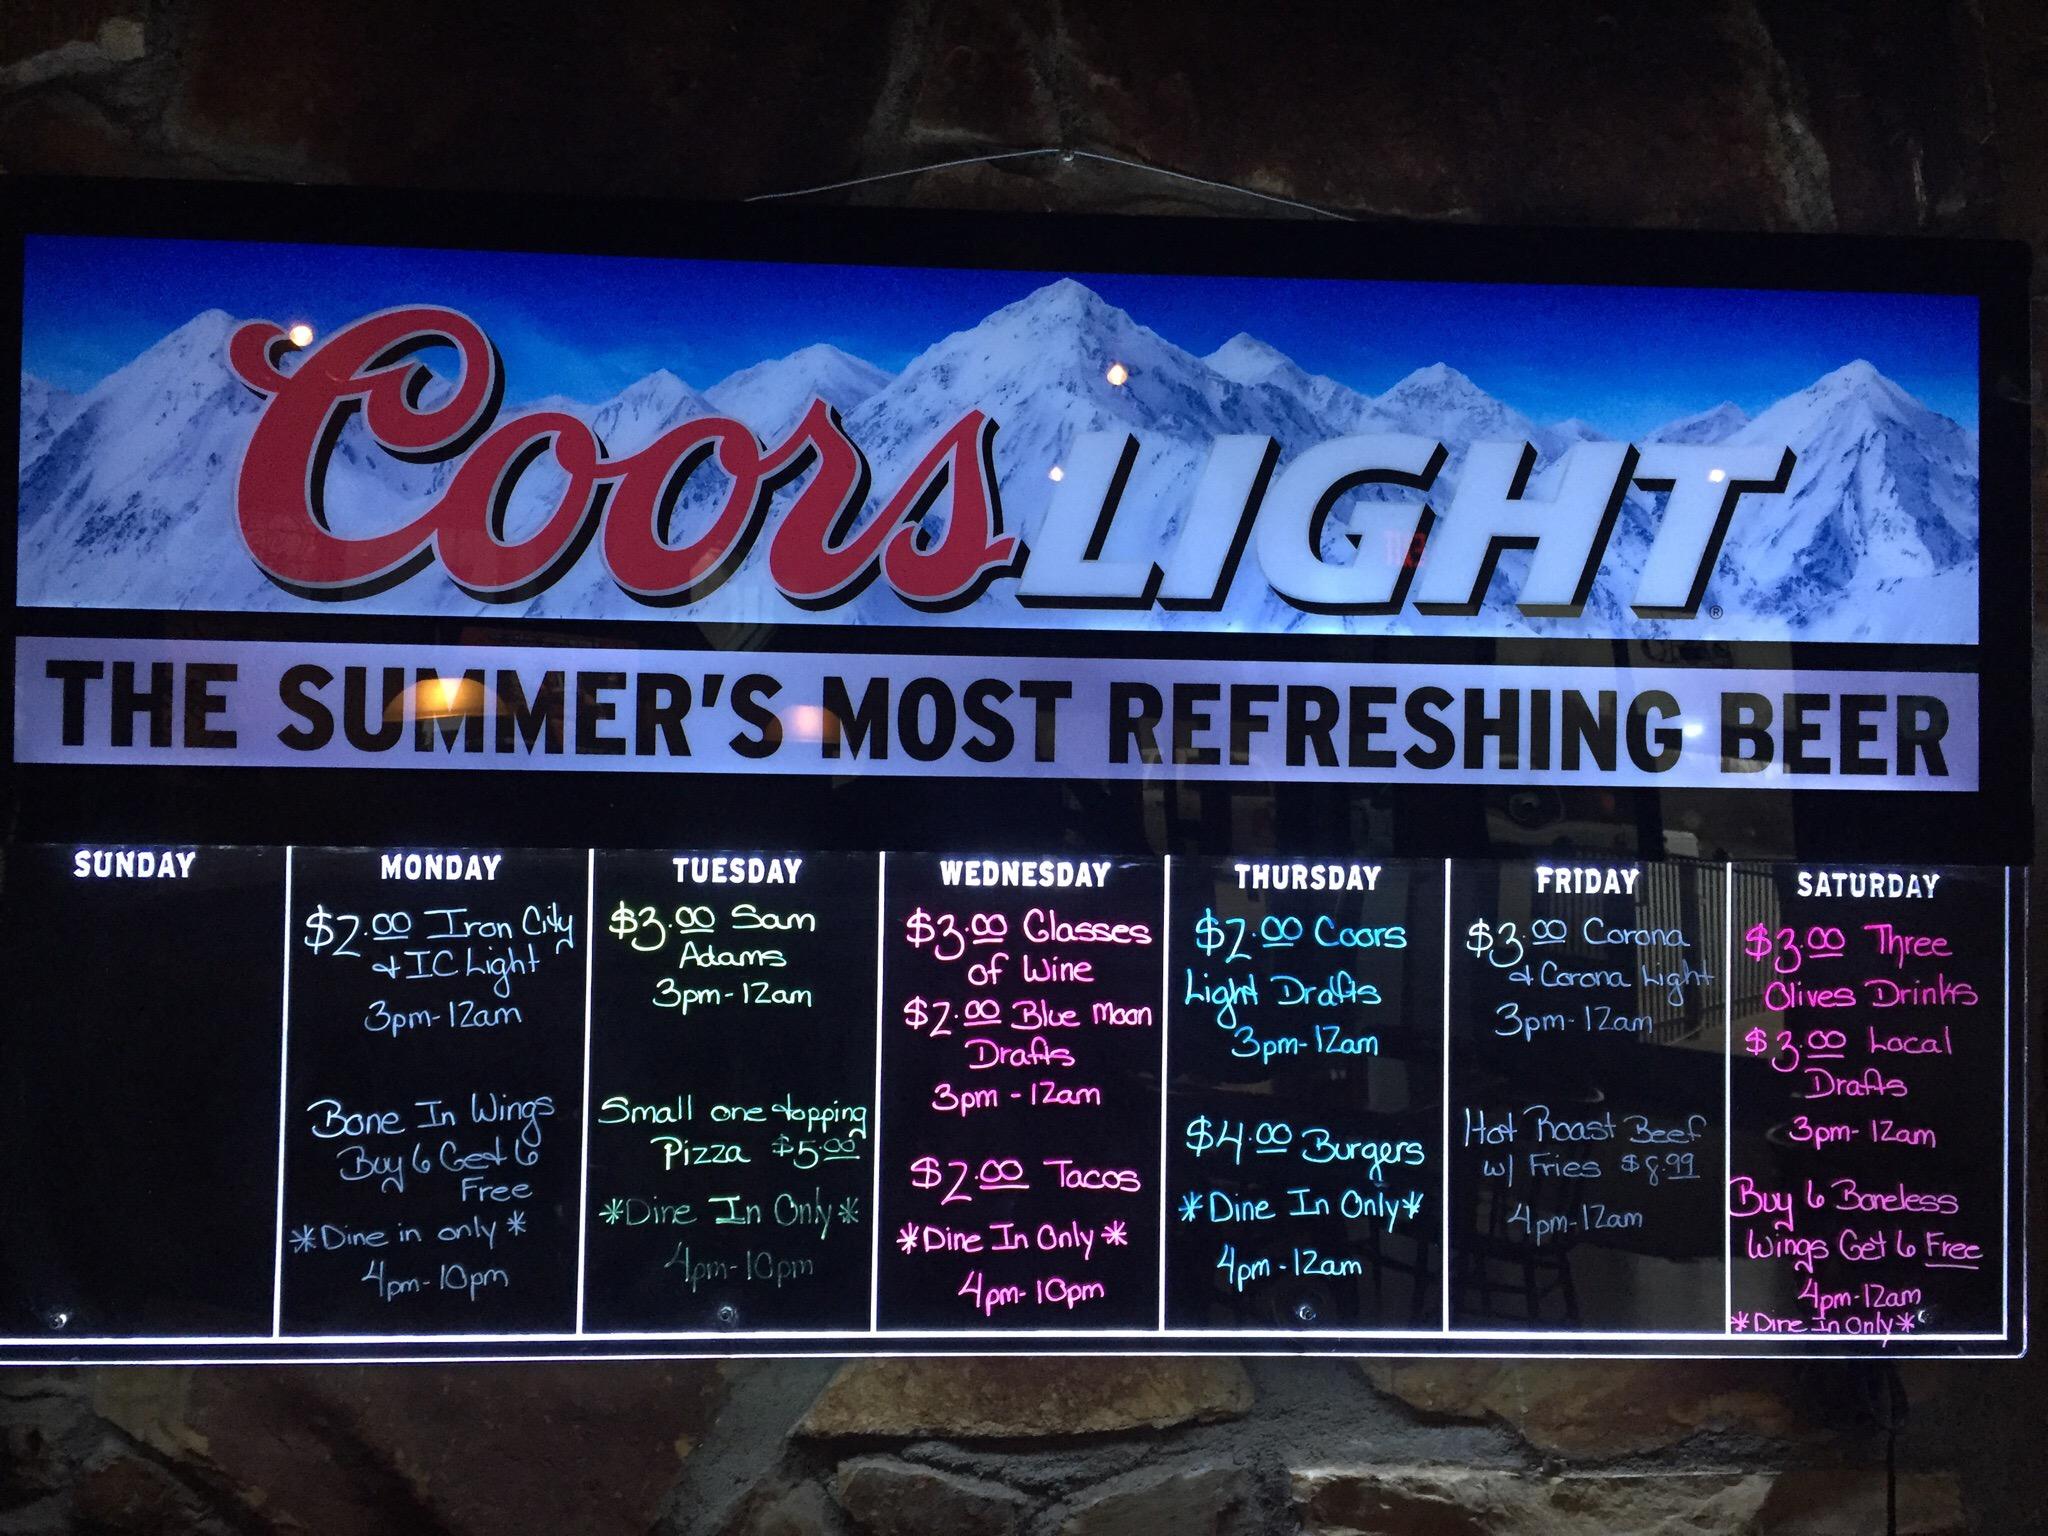 Coors LIGHT ®
THE SUMMER'S MOST REFRESHING BEER
SUNDAY
MONDAY
$2.00 Iron City
& IC Light
3pm-12am
Bone In Wings
Buy 6 Get 6
Free
*Dine in only*
4pm-10pm
TUESDAY
$3.00 Sam
Adams
3pm-12am
Small one topping
Pizza $5.00
*Dine In Only*
4pm-10pm
WEDNESDAY
$3.00 Glasses
of Wine
$2.00 Blue Moon
Drafts
3pm-12am
$2.00 Tacos
*Dine In Only*
4pm-10pm
THURSDAY
$2.00 Coors
Light Drafts
3pm-12am
$4.00 Burgers
*Dine In Only*
4pm-12am
FRIDAY
$3.00 Corona
& Corona Light
3pm-12am
Hot Roast Beef
w/ Fries $8.99
4pm-12am
SATURDAY
$3.00 Three
Olives Drinks
$3.00 Local
Drafts
3pm-12am
Buy 6 Boneless
Wings Get 6 Free
4pm-12am
*Dine In Only*